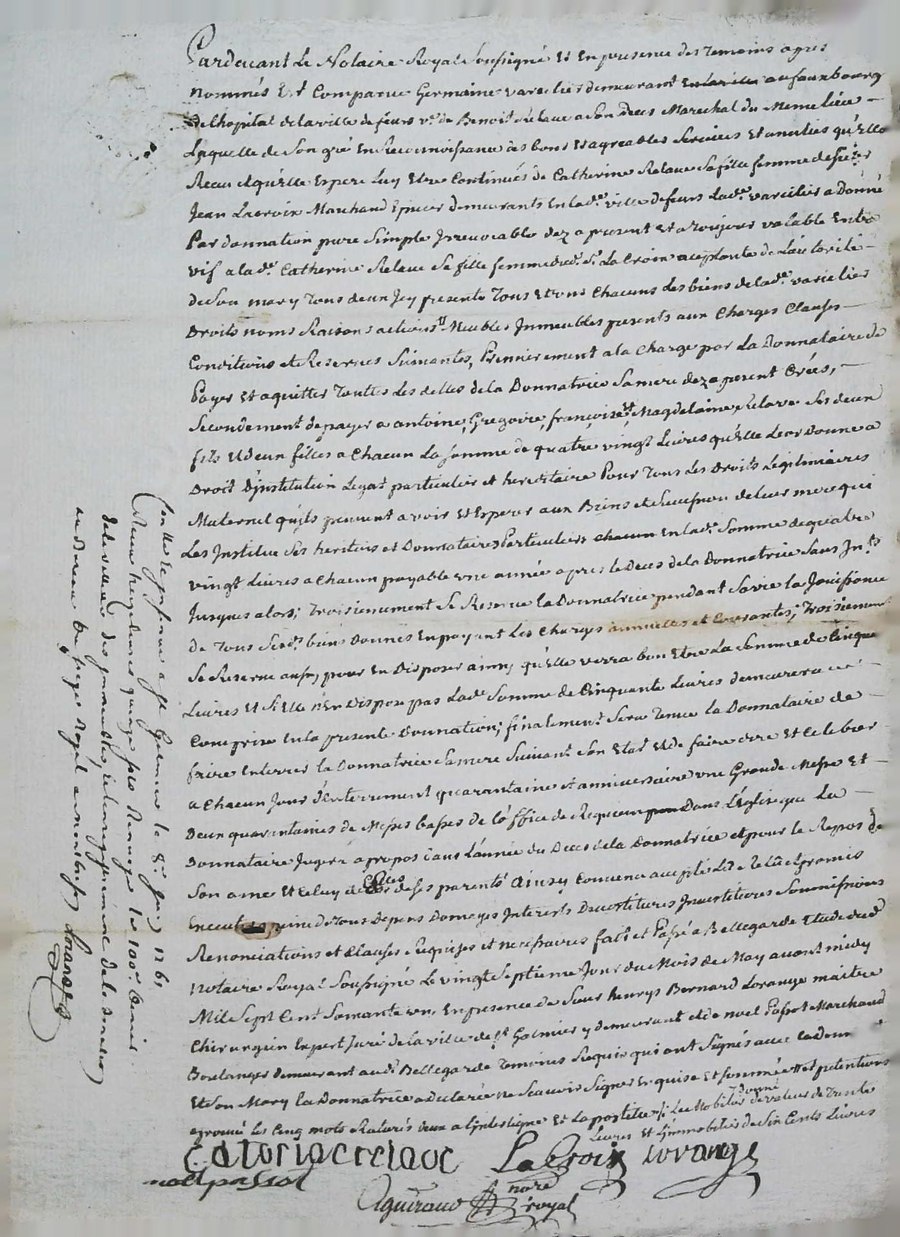 Pardevant Le Notaire Royal soussigné Et En presence des temoins apres
nommés Est Comparue Germaine vareilles demeurant au fauxbourg
de L'hopital de la ville de feurs vve de Benoist Relave a son Deces Marechal du Meme Lieu
Laquelle de Son gré En Reconnoissance des bons Et agreables Services Et amitiés qu'Elle
Recu Et qu'elle Espere Luy Etre Continués de Catherine Relave Sa fille femme de sieur
Jean Lacroix Marchand Epicier demeurants En lade. ville de feurs Lade. vareilles a donné
Par donnation pure Simple Irrevocable dez a present Et a toujours valable Entre
vif a lade. Catherine Relave Sa fille femme dud. Sr. La Croix aceptante de L'autorité
de Son mary tous deux Icy presents Tous Et uns Chacuns Les biens de lade. vareilles
Droits noms Raisons actions Meubles Immeubles presents aux Charges Clauses
Conditions et Reserves Suivantes, Premierement a la Charge par La Donnataire de
Payer Et aquitter Toutes Les dettes de la Donnatrice Sa mere dez a present Crées,
Secondement de payer a antoine, Gregoire, françoise Et Magdelaine Relave Ses deux
fils Et deux filles a Chacun La Somme de quatre vingt Livres qu'Elle Leur Donne a
Droit D'institution Legat particulier et hereditaire Pour Tous Les Droits Legitimaires
Maternel qu'ils peuvent avoir Et Esperer aux Biens et Succession de leur mere qui
Les Institue Ses heritiers et Donnataires Particuliers chacun En lade. Somme de quatre
vingt Livres a Chacun payable une année apres le Deces de la Donnatrice Sans Int.ts
Jusques alors; Troisiemement Se Reserve la Donnatrice pendant Sa vie la Jouissance
de Tous Sesd. bien Donnés En payant Les Charges annuelles et Courantes; Troisiement
Se Reserve aussy pour En Disposer ainsy qu'Elle verra bon Etre La Somme de Cinquante
Livres Et Si Elle n'En Dispose pas Lade. Somme de Cinquante Livres demeurera
Comprise En la presente Donnation; finalement Sera Tenue la Donnataire de
faire Enterrer la Donnatrice Sa mere Suivant Son Etat Et de faire dire Et Celebrer
a Chacun Jour D'enterrement quarantaine et anniversaire une Grande Messe Et
Deux quarantaines de Messes basses de l'office de Requiem Dans L'Eglise que La
Donnataire Jugera a propos dans L'année du Deces de la Donnatrice et pour le Repos de
Son ame Et Celuy de Ses parents Ainsy Convenu accepté Et promis
Executer a peine de Tous Depens Domages Interests Devestitures Investitures Soumissions
Renonciations et Clauses Requises et necessaires fait et Passé a Bellegarde Etude dud.
notaire Royal Soussigné Le vingt Septieme Jour du Mois de May avant midy
Mil Sept Cent Soixante un En presence de Sieur henrys Bernard Lorange maitre
Chirurgien Expert Juré de la ville de St. Galmier y demeurant et de noel Passot Marchand
Boulanger demeurant aud. Bellegarde Temoins Requis qui ont Signés avec la Donnataire
Et Son Mary la Donnatrice a declaré ne Scavoir Signer Enquise Et Sommée
aprouvé les Cinq mots Raturés Les Mobilier donné de valeur de Trente
Livres Et L'immobilier de Six Cents Livres
Catoriacrelave LaCroix Lorange
noel passot
Aguiraud nore
royal
Controllé a St. Galmier le 8e. juin 1761
Reçu
au bureau du siege Royal a montbrison